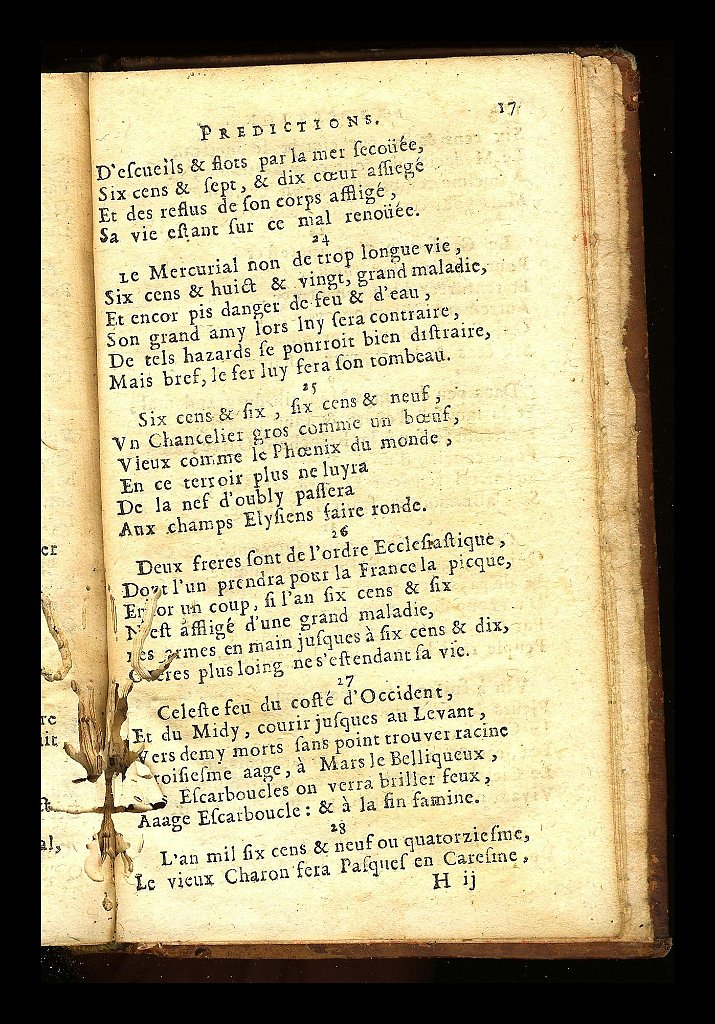 PREDICTIONS. 17
D'eſcueils & flots par la mer ſecoüée,
Six cens & ſept, & dix cœur aſſiegé
Et des reflus de ſon corps affligé,
Sa vie eſtant ſur ce mal renoüée.
24
Le Mercurial non de trop longue vie,
Six cens & huict & vingt, grand maladie,
Et encor pis danger de feu & d'eau,
Son grand amy lors luy ſera contraire,
De tels hazards ſe pourroit bien diſtraire,
Mais bref, le fer luy fera ſon tombeau.
25
Six cens & ſix, ſix cens & neuf,
Vn Chancelier gros comme un bœuf,
Vieux comme le Phœnix du monde,
En ce terroir plus ne luyra
De la nef d'oubly paſſera
Aux champs Elyſiens faire ronde.
26
Deux freres ſont de l'ordre Eccleſiaſtique,
Dont l'un prendra pour la France la picque,
un coup, ſi l'an ſix cens & ſix
N'eſt affligé d'une grand maladie,
armes en main juſques à ſix cens & dix,
plus loing ne s'eſtendant ſa vie.
27
Celeſte feu du coſté d'Occident,
Et du Midy, courir juſques au Levant,
Vers demy morts ſans point trouver racine
aage, à Mars le Belliqueux,
Eſcarboucles on verra briller feux,
Aaage Eſcarboucle: & à la fin famine.
28
L'an mil ſix cens & neuf ou quatorzieſme,
Le vieux Charon fera Paſqueſ en Careſme,
H ij
er
re
it
al,